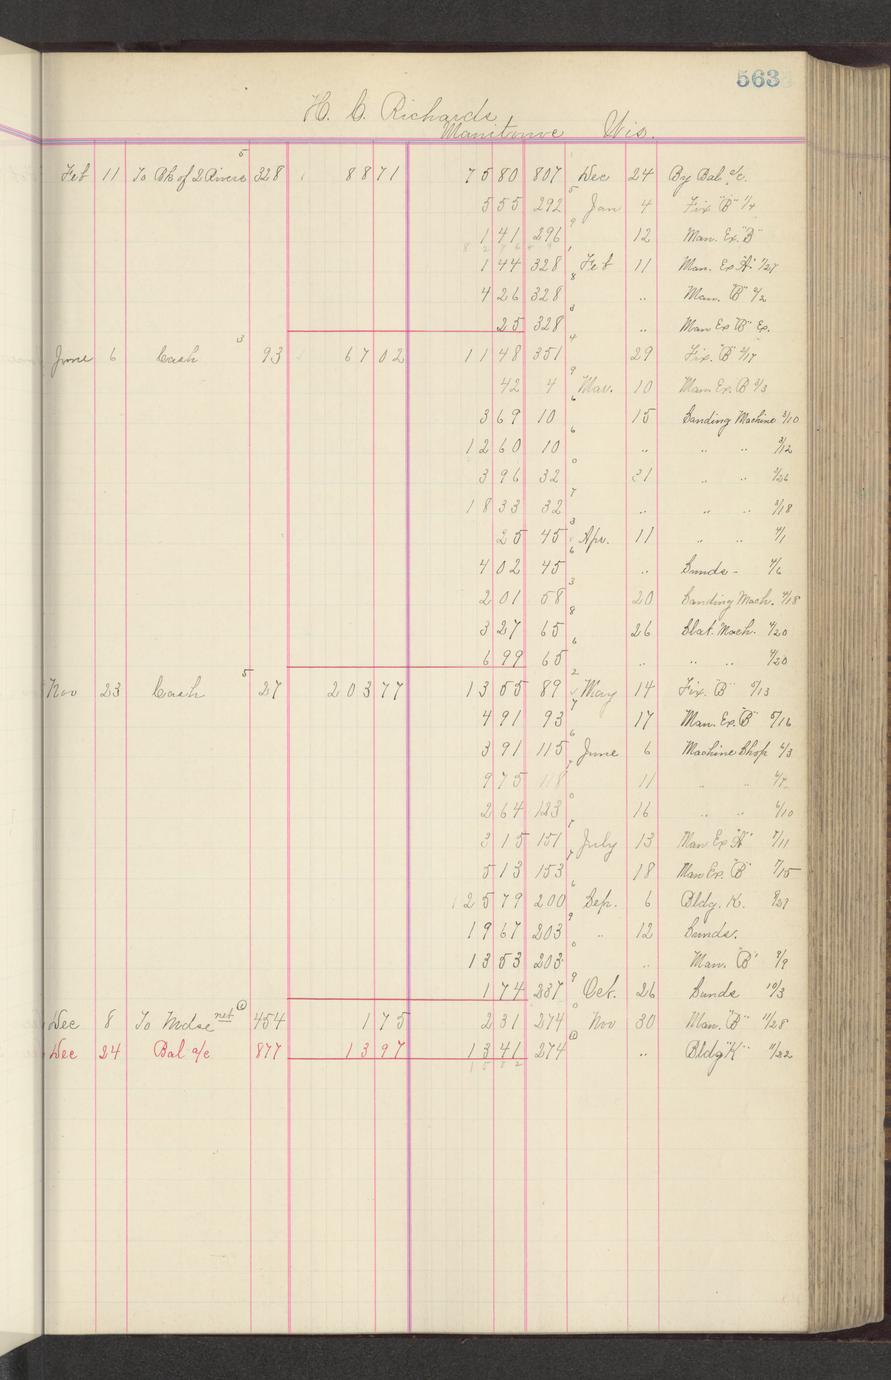 563
H. C. Richards
Manitowoc Wis.
Feb 11 To Bk of 2 Rivers 5 328 8871 7580 807 Dec 24 By Bal a/c.
555 292 5 Jan 4 Fix "B" 1/4
141 296 9 12 Man. Ex. "B"
144 328 1 Feb 11 Man. Ex "A" 1/27
426 328 8 .. Man. "B" 2/2
25 328 3 .. Man Ex "B" Ex.
June 6 Cash 3 93 6702 1148 351 4 29 Fix. "B" 2/17
42 4 9 Mar. 10 Man. Ex. B 3/3
369 10 6 15 Sanding Machine 3/10
1260 10 6 .. .. .. 3/12
396 32 0 21 .. .. 3/26
1833 32 7 .. .. .. 3/18
25 45 3 Apr. 11 .. .. 4/1
402 45 6 .. Sunds - 4/6
201 58 3 20 Sanding Mach. 4/18
327 65 8 26 Slat. Mach. 4/20
699 65 6 .. .. .. 4/20
Nov 23 Cash 5 27 20377 1355 89 2 May 14 Fix. "B" 5/13
491 93 7 17 Man. Ex. "B" 5/16
391 115 6 June 6 Machine Shop 6/3
975 118 7 11 .. .. 6/7
264 123 0 16 .. .. 6/10
315 151 7 July 13 Man Ex "A" 7/11
513 153 7 18 Man Ex. "B" 7/15
12579 200 6 Sep. 6 Bldg. K. 8/29
1967 203 9 .. 12 Sunds.
1353 203 0 .. Man. "B" 9/9
174 237 9 Oct. 26 Sunds 10/3
Dec 8 To Mdse net 454 175 231 274 0 Nov 30 Man. "B" 11/28
Dec 24 Bal a/c 877 1397 1341 274 .. Bldg "K" 11/22
1582